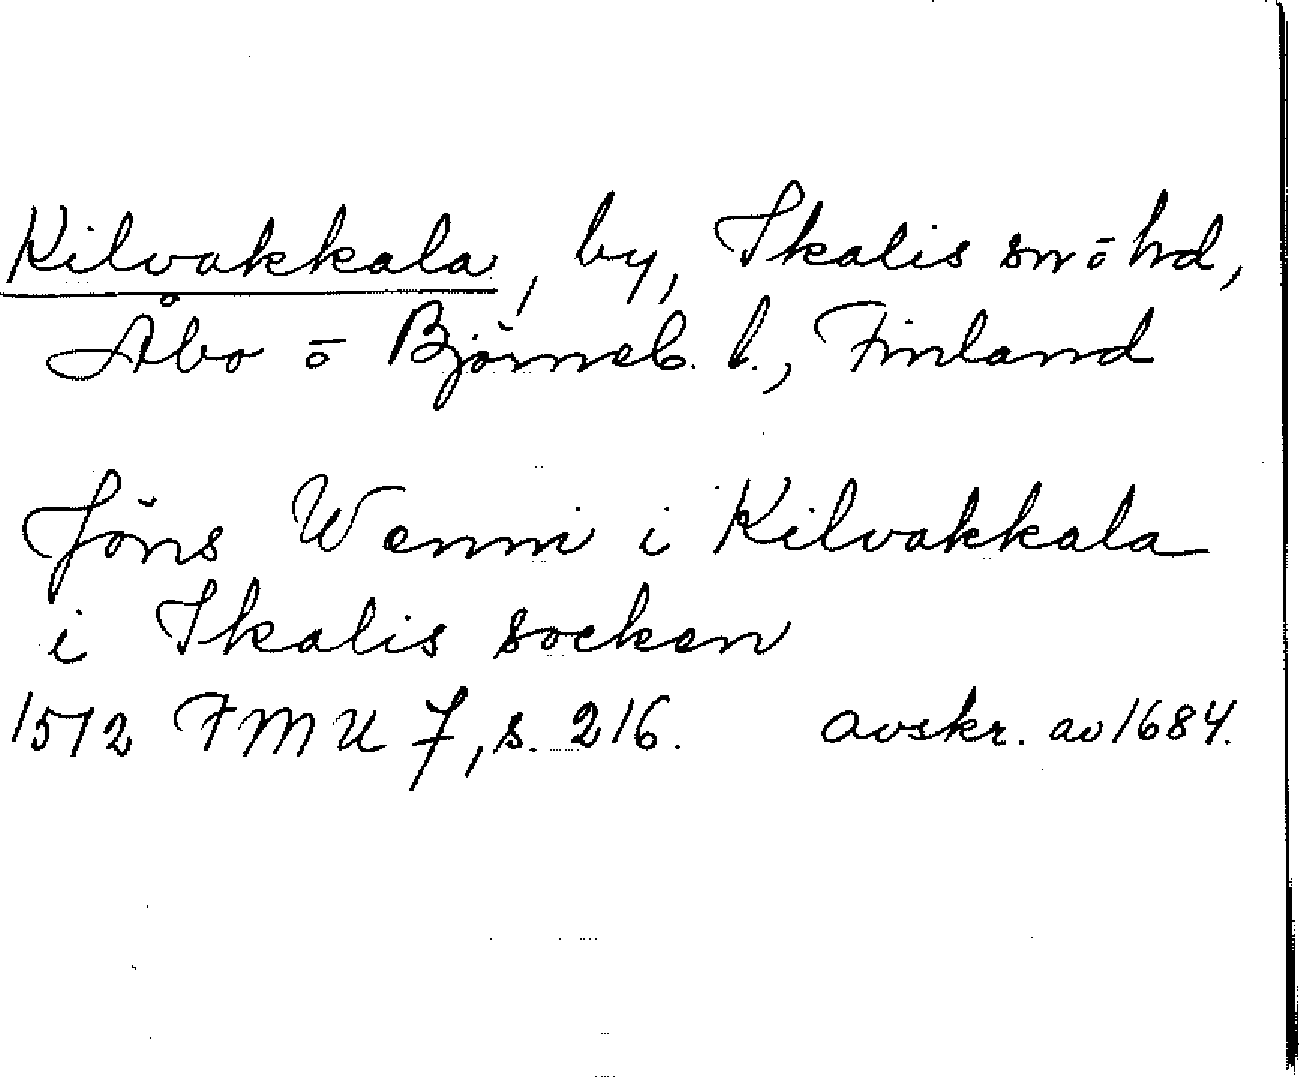 Kilvakkala, by, Ikalis sn ō hd,
Åbo ō Björneb. l., Finland
Jöns Wenni i Kilvakkala
i Ikalis socken
1512 FMU 7, s. 216. avskr. av 1684.